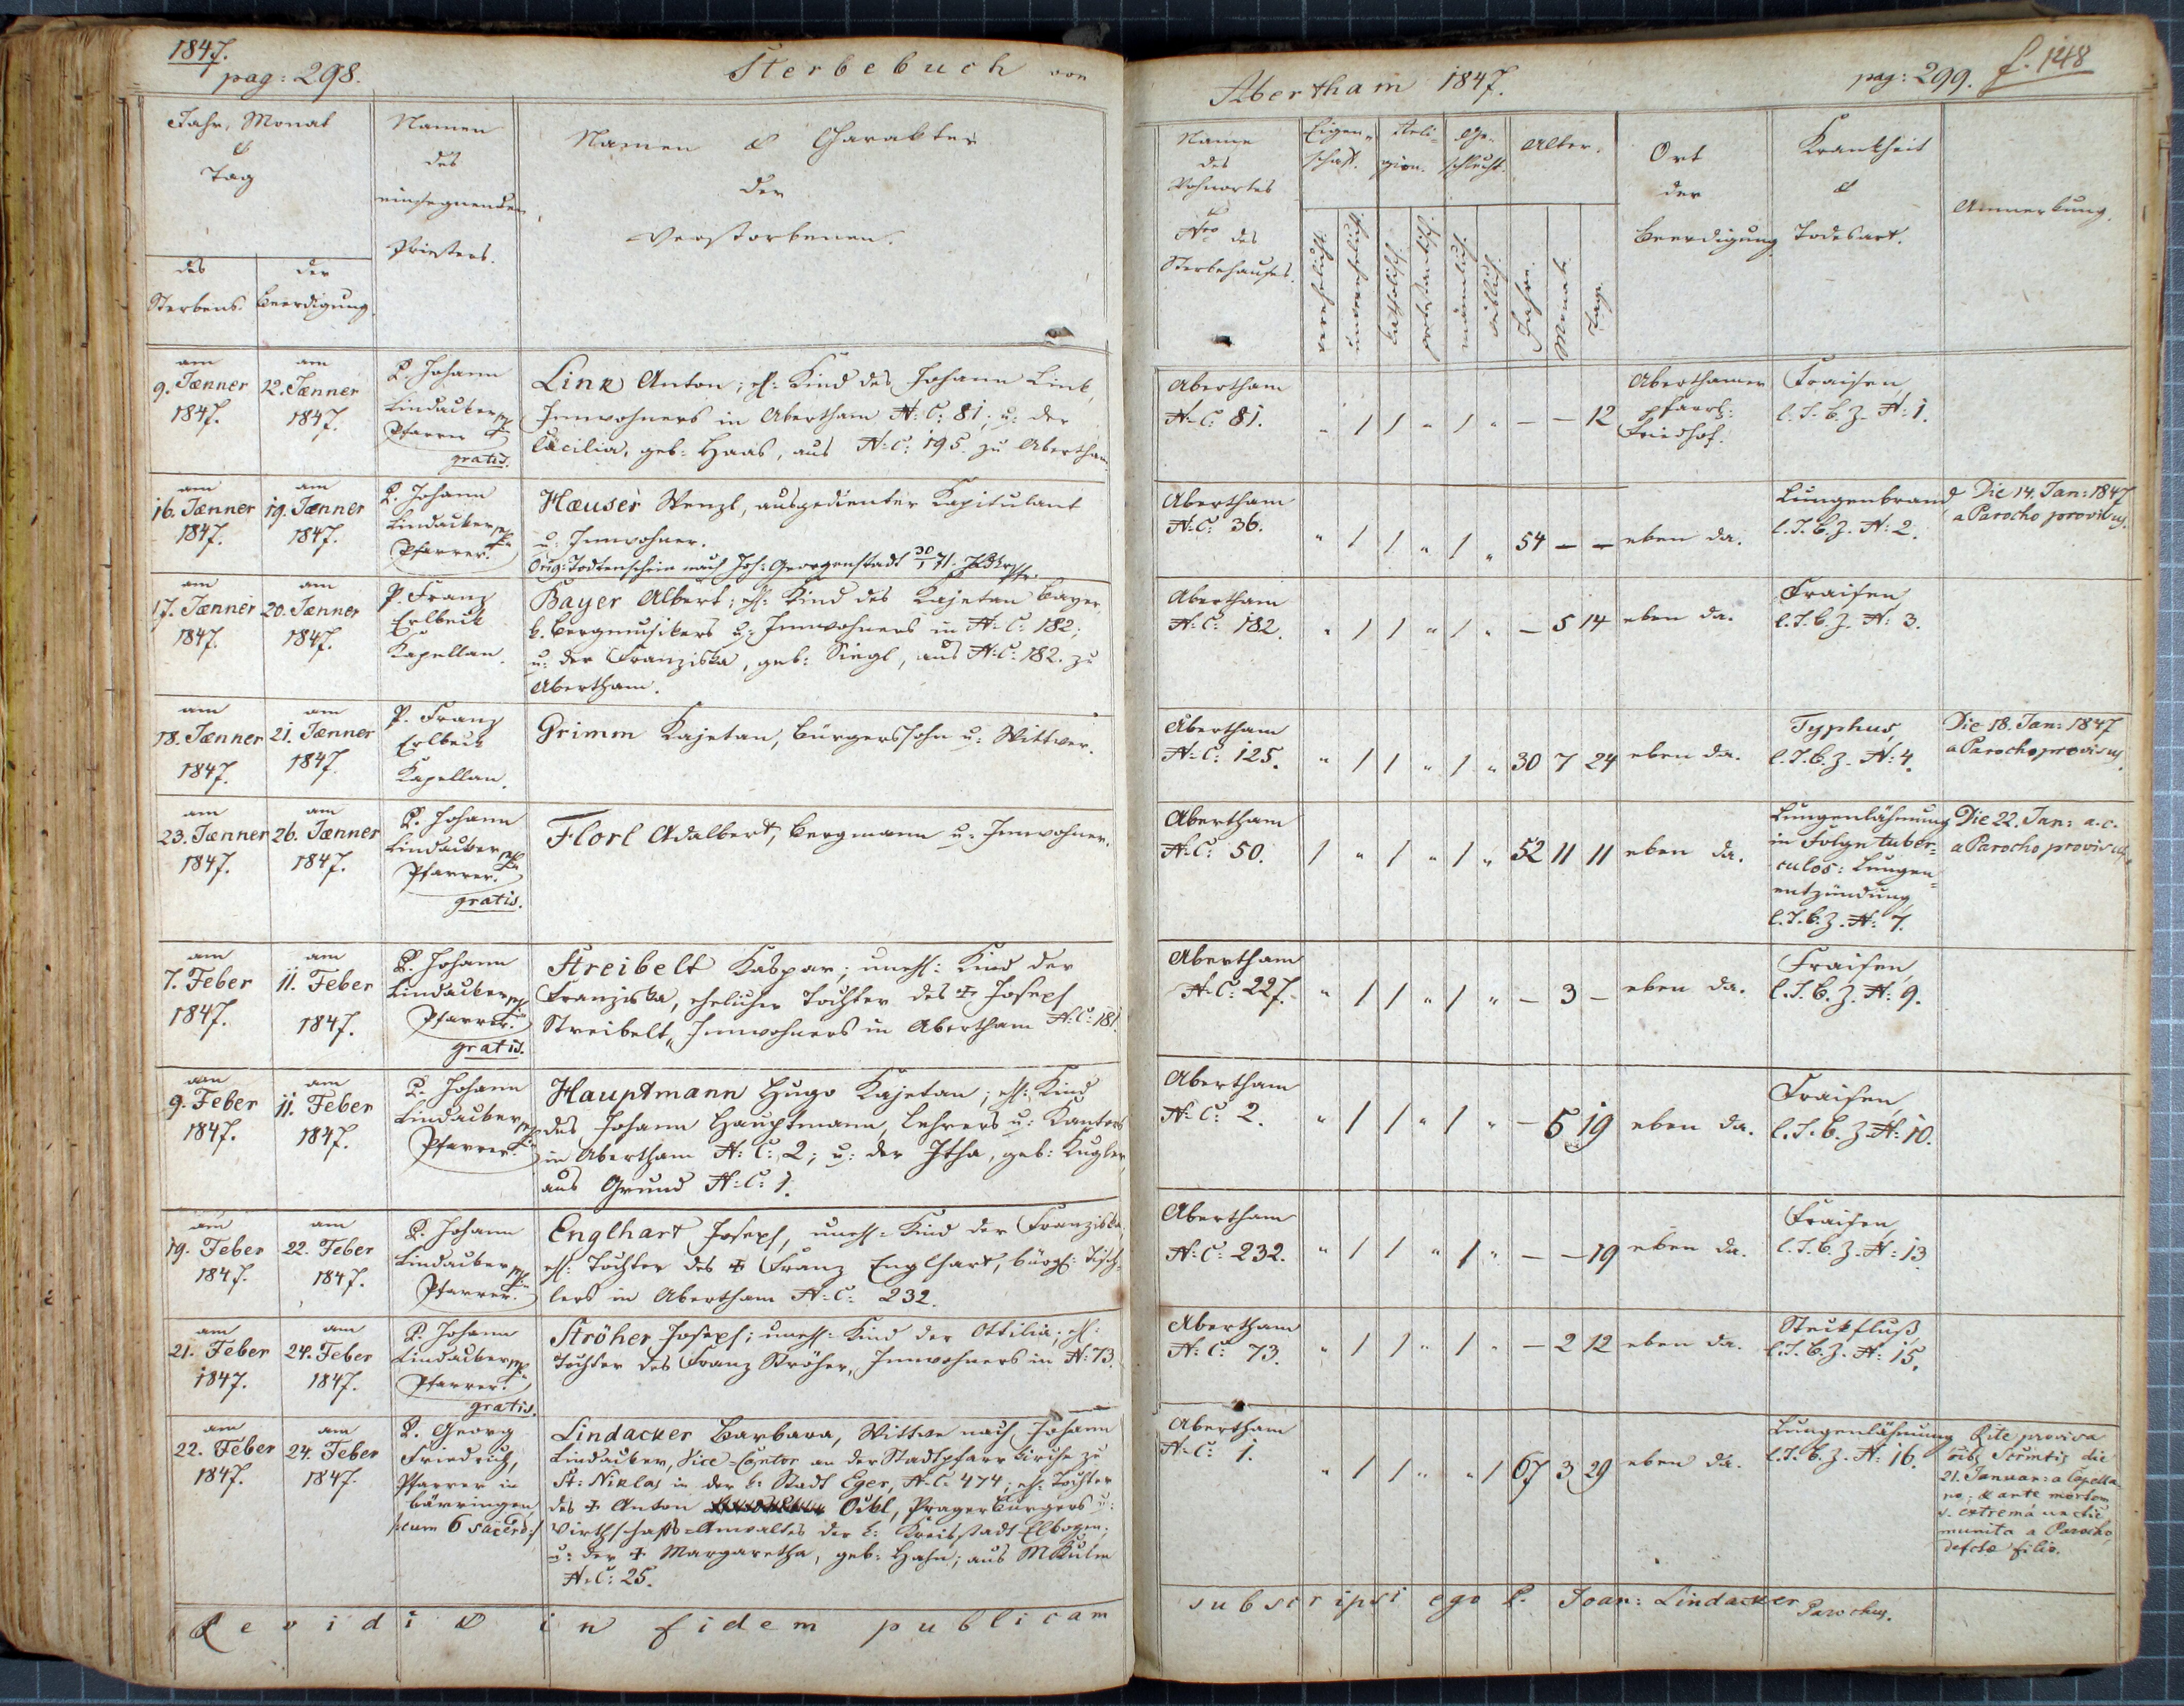 1847.
pag: 298.
Sterbebuch von
Jahr, Monat
&
Tag
des
Sterbens.
der
Beerdigung
Namen
des
einsegnenden
Priesters.
Namen & Charakter
der
Verstorbenen.
am
9. Jænner
1847.
am
12. Jænner
1847.
P. Johann
Lindacker
Pfarrer
gratis.
Link Anton; ehl: Kind des Johann Link,
Innwohners in Abertham N: C: 81; u: der
Cäcilia, geb: Haas, aus N: C: 195. zu Abertham.
am
16. Jænner
1847.
am
19. Jænner
1847.
P. Johann
Lindacker
Pfarrer.
Hæuser Wenzl, ausgedienter Kapitulant
u: Innwohner.
Orig: Todtenschein nach Joh: Georgenstadt 30/1 71.
am
17. Jænner
1847.
am
20. Jænner
1847.
P. Franz
Erlbeck
Kapellan.
Bayer Albert; ehl: Kind des Kajetan Bayer,
b. Bergmusikers u: Innwohners in N: C: 182;
u: der Franziska, geb: Siegl, aus N: C: 182. zu
Abertham.
am
18. Jænner
1847.
am
21. Jænner
1847.
P. Franz
Erlbeck
Kapellan.
Grimm Kajetan, Bürgerssohn u: Wittwer.
am
23. Jænner
1847.
am
26. Jænner
1847.
P. Johann
Lindacker
Pfarrer.
gratis.
Florl Adalbert, Bergmann u: Innwohner.
am
7. Feber
1847.
am
11. Feber
1847.
P. Johann
Lindacker
Pfarrer.
gratis.
Streibelt Kaspar; unehl: Kind der
Franziska, ehelicher Tochter des + Joseph
Streibelt, Innwohners in Abertham N: C: 181.
am
9. Feber
1847.
am
11. Feber
1847.
P. Johann
Lindacker
Pfarrer.
Hauptmann Hugo Kajetan; ehl: Kind
des Johann Hauptmann, Lehrers u: Kantors
in Abertham N: C: 2; u: der Itha, geb: Kugler,
aus Grund N: C: 1.
am
19. Feber
1847.
am
22. Feber
1847.
P. Johann
Lindacker
Pfarrer.
Englhart Joseph, unehl: Kind der Franziska,
ehl: Tochter des + Franz Englhart, bürgl: Tisch-
lers in Abertham N: C: 232.
am
21. Feber
1847.
am
24. Feber
1847.
P. Johann
Lindacker
Pfarrer.
gratis.
Ströher Joseph; unehl: Kind der Ottilia; ehl:
Tochter des Franz Ströher, Innwohners in N: 73.
am
22. Feber
1847.
am
24. Feber
1847.
P. Georg
Friedrich,
Pfarrer in
Bärringen,
/:cum 6 sacerd:/
Lindacker Barbara, Wittwe nach Johann
Lindacker, Vice-Cantor an der Stadtpfarrkirche zu
St: Niklas in der k: Stadt Eger, N: C: 474; eh: Tochter
des + Anton Öckl, Pragerbürgers u:
Wirthschafts-Anwaltes der k: Kreisstadt Elbogen;
u: der + Margaretha, geb: Hahn; aus MKulm
N: C: 25.
Revidi & in fidem publicam
Abertham 1847.
pag: 299.
f. 148
Name
des
Wohnortes
&
Nro des
Sterbehauses.
Eigen-
schaft.
verehelicht.
unverehelicht.
Reli-
gion.
katholisch.
protestantisch.
Ge-
schlecht.
männlich.
weiblich.
Alter.
Jahre.
Monate.
Tage.
Ort
der
Beerdigung.
Krankheit
&
Todesart.
Anmerkung.
Abertham
N: C: 81.
" / / " / " — — 12
Aberthamer
pfarrl:
Friedhof.
Fraisen,
l. T. B. Z. N: 1.
Abertham
N: C: 36.
" / / " / " 54 — —
eben da.
Lungenbrand
l. T. B. Z. N: 2.
Die 14. Jan: 1847
a Parocho provisus.
Abertham
N: C: 182.
" / / " / " — 5 14
eben da.
Fraisen
l. T. B. Z. N: 3.
Abertham
N: C: 125.
" / / " / " 30 7 24
eben da.
Typhus,
l. T. B. Z. N: 4.
Die 18. Jan: 1847
a Parocho provisus.
Abertham
N: C: 50.
/ " / " / " 52 11 11
eben da.
Lungenlähmung
in Folge tuber-
culos: Lungen-
entzündung,
l. T. B. Z. N: 7.
Die 22. Jan: a. c.
a Parocho provisus.
Abertham
N: C: 227.
" / / " / " — 3 —
eben da.
Fraisen,
l. T. B. Z. N: 9.
Abertham
N: C: 2.
" / / " / " — 5 19
eben da.
Fraisen,
l. T. B. Z. N: 10.
Abertham
N: C: 232.
" / / " / " — — 19
eben da.
Fraisen,
l. T. B. Z. N: 13.
Abertham
N: C: 73.
" / / " / " — 2 12
eben da.
Steckfluß,
l. T. B. Z. N: 15.
Abertham
N: C: 1.
" / / " " / 67 3 29
eben da.
Lungenlähmung
l. T. B. Z. N: 16.
Rite provisa
die
21. Januar: a Capella-
no; & ante mortem
s. extrema unctio
munita a Parocho,
defctæ filio.
subscripsi ego P. Joan: Lindacker
Parochus.